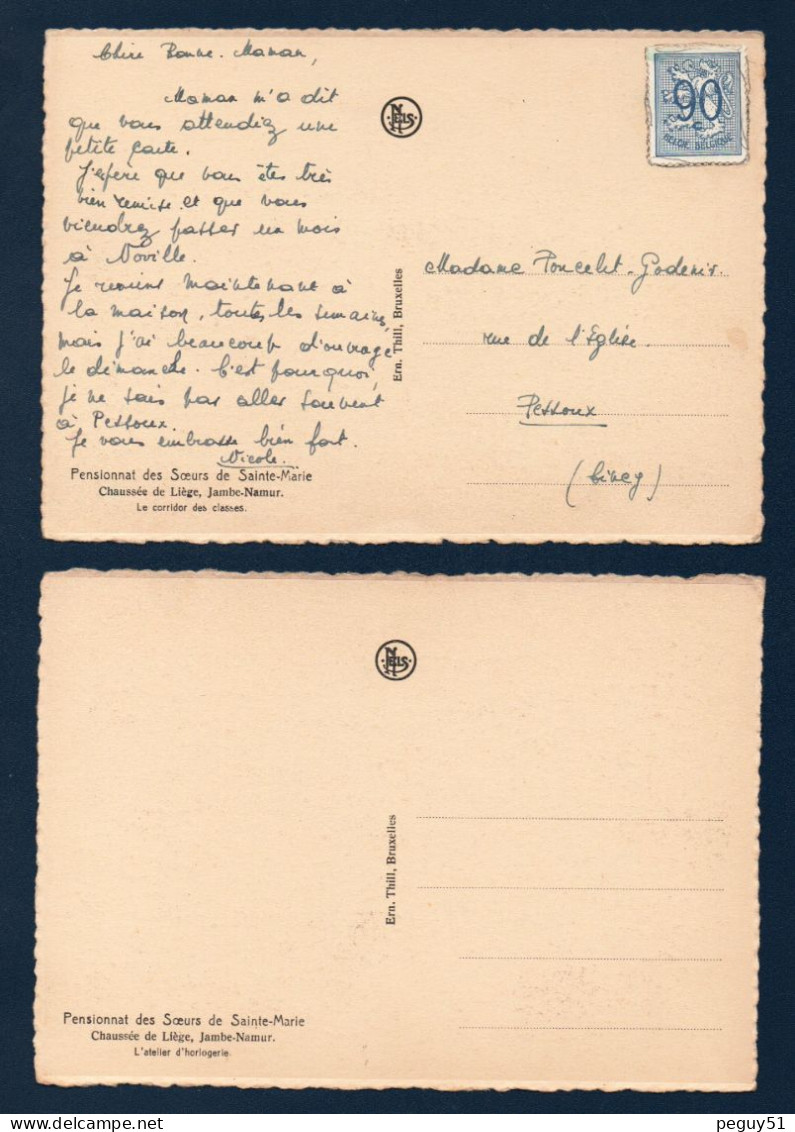 Chère Bonne-Maman,
Maman m'a dit
que vous attendiez une
petite carte.
J'espère que vous êtes très
bien remise et que vous
viendrez passer un mois
à Noville.
Je reviens maintenant à
la maison, toutes les semaines,
mais j'ai beaucoup d'ouvrage
le dimanche. C'est pourquoi,
je ne sais pas aller souvent
à Pessoux.
Je vous embrasse bien fort.
Nicole.
Pensionnat des Sœurs de Sainte-Marie
Chaussée de Liège, Jambe-Namur.
Le corridor des classes.
NELS
Ern. Thill, Bruxelles
90
c
BELGIE BELGIQUE
Madame Poncelet-Godenir.
rue de l'Eglise.
Pessoux
(Ciney)
NELS
Ern. Thill, Bruxelles
Pensionnat des Sœurs de Sainte-Marie
Chaussée de Liège, Jambe-Namur.
L'atelier d'horlogerie.
peguy51